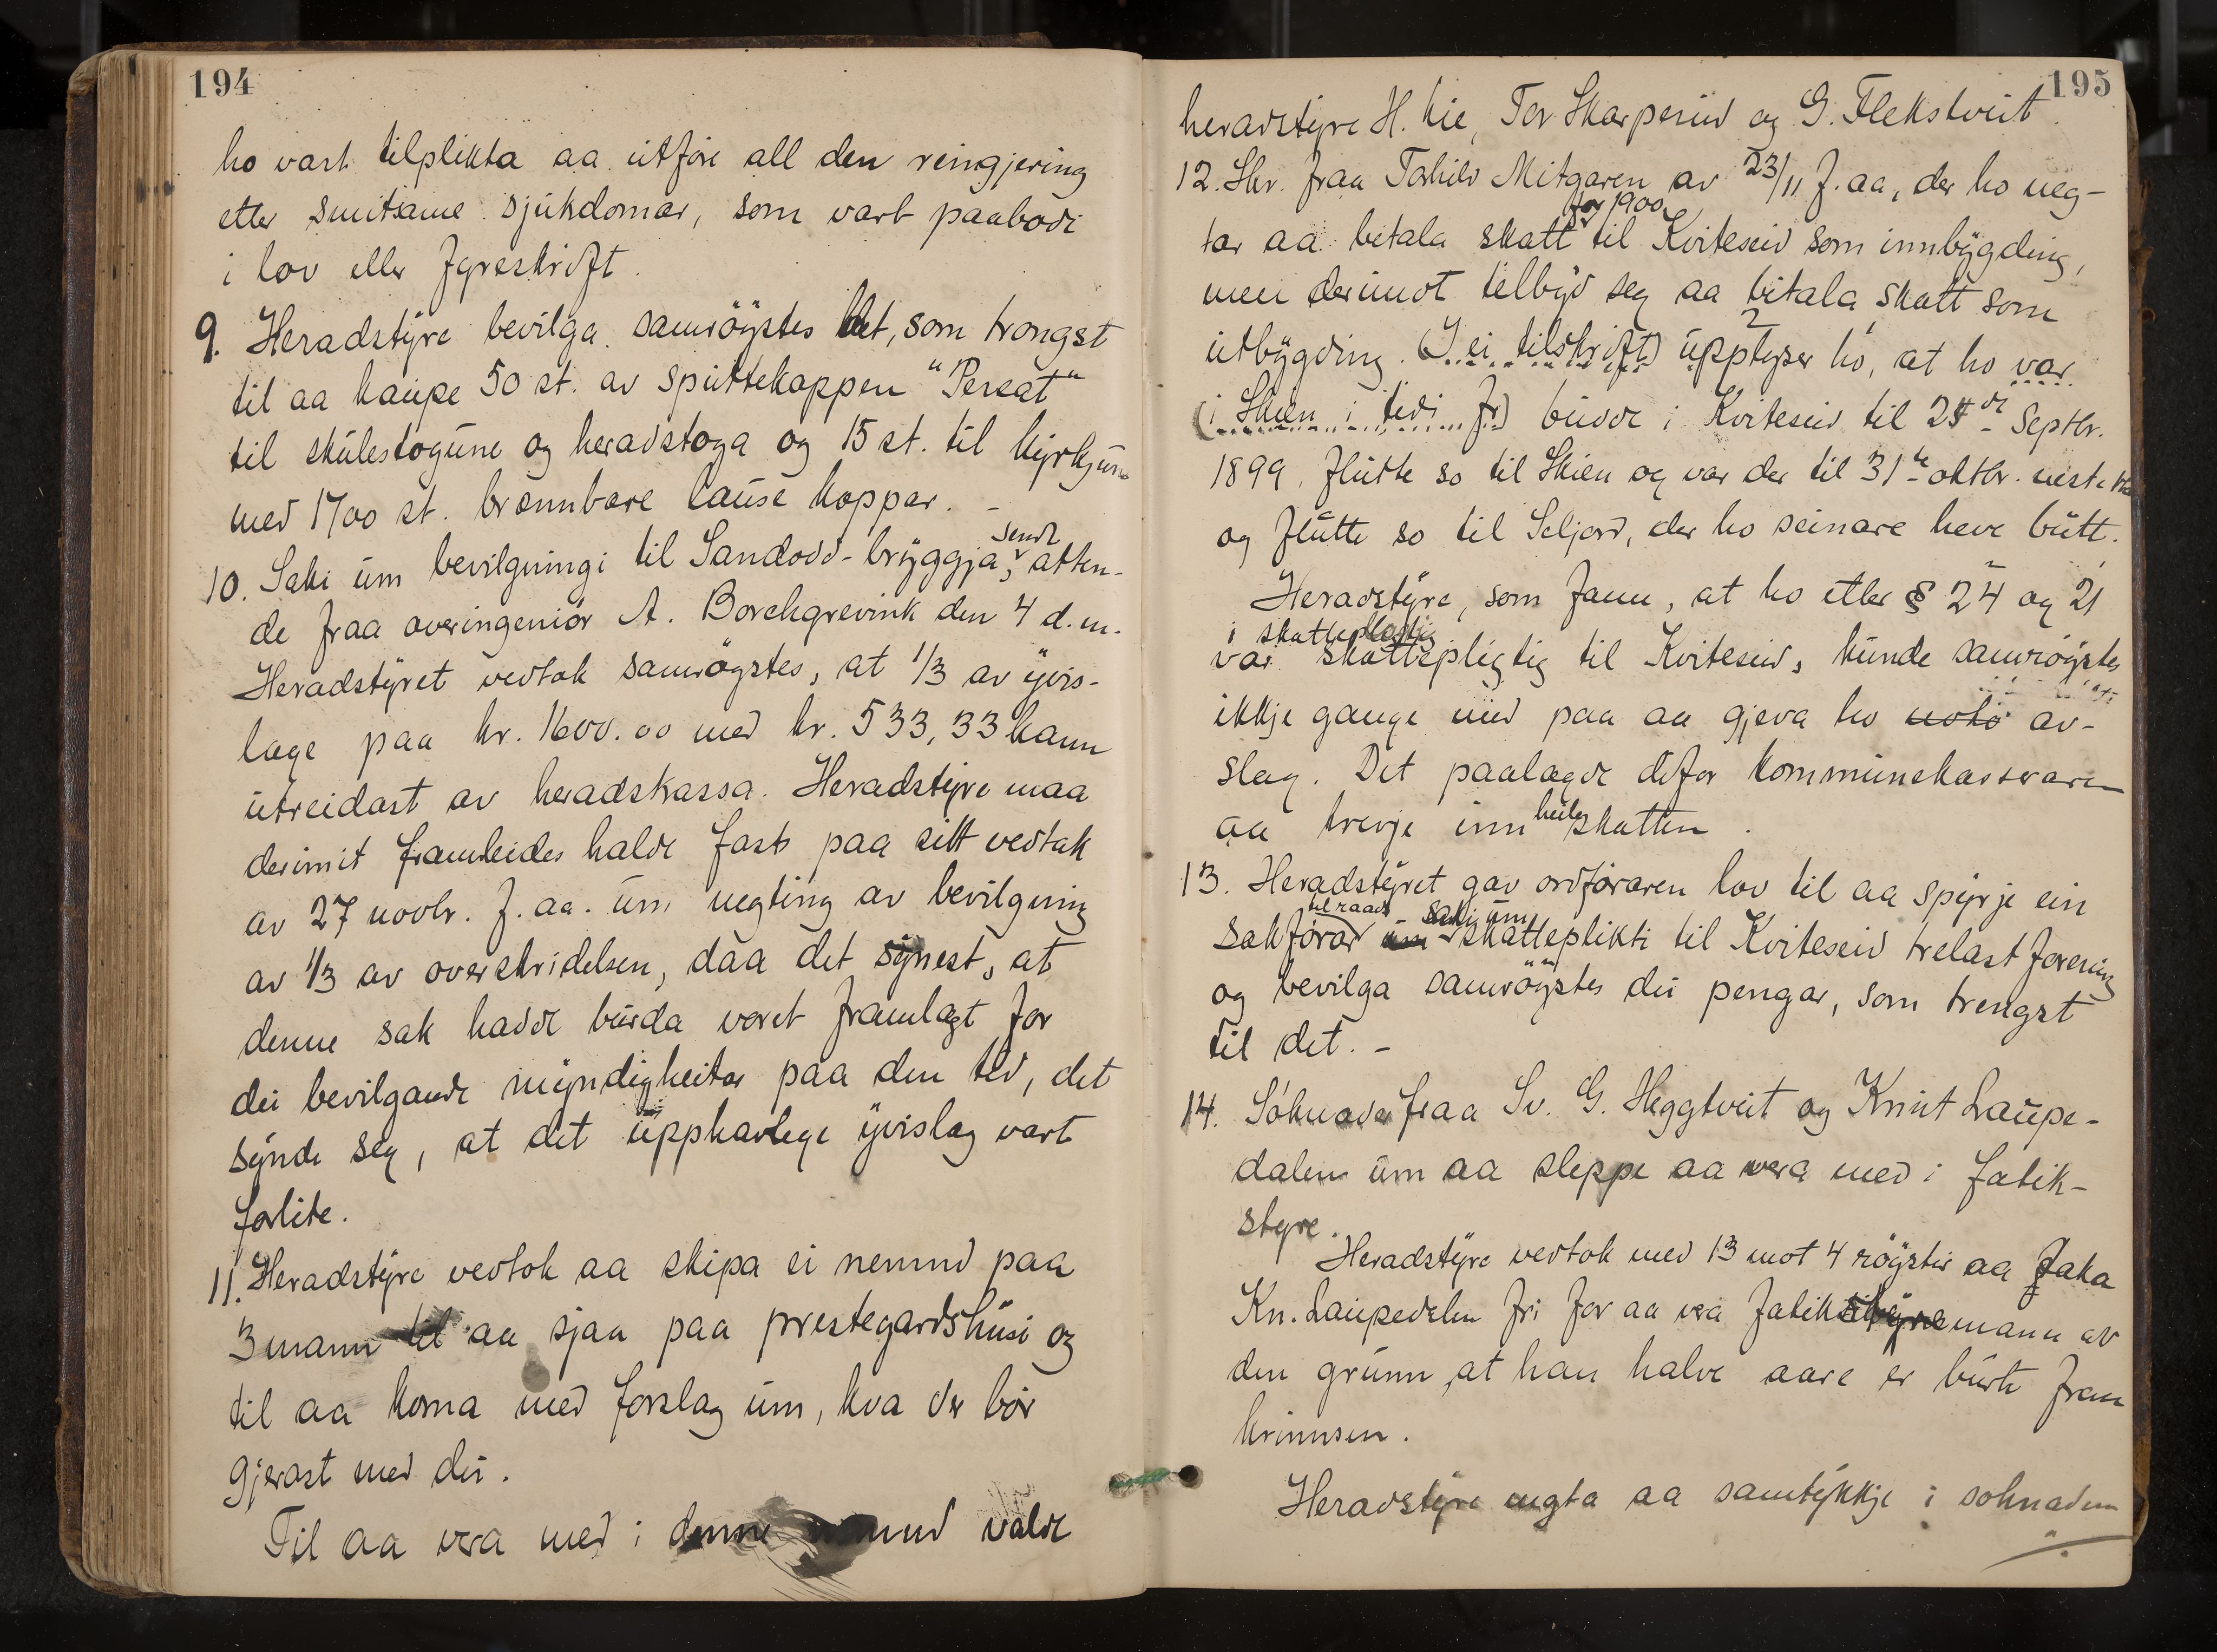 194
ho vart tilplikta aa utföre all den reingjering
etter smitsame sjukdomar, som vart paabodi
i lov eller fyreskrift.
9. Heradstyre bevilga samröystes det, som trongst
til aa kaupe 50 st. av spüttekoppen "Pereat"
til skulestogune og heradstoga og 15 st. til kyrkjune
med 1700 st. brennbare lause koppar. -
10. Saki um bevilgningi til Sandodd-bryggja, sendt atten-
de fraa overingeniör A. Borchgrevink den 4 d.m.
Heradstyret vedtok samröystes, at 1/3 av yvis-
lage paa kr. 1600.00 med kr. 533,33 kann
utreidast av heradskassa. Heradstyre maa
derimit framleides halde fast paa sitt vedtak
av 27 novbr. f.aa. um negting av bevilgning
av 1/3 av overskridelsen, daa det synest, at
denne sak hadde burda voret framlagt for
dei bevilgande myndigheiter paa den tid, det
synde seg, at det upphavlege yvislag vart
forlite.
11. Heradstyre vedtok aa skipa ei nemnd paa
3 mann til aa sjaa paa prestegardshusi og
til aa koma med forslag um, kva der bör
gjerast med dei.
Til aa vera med i denne nemnd valde
195
heradstyre H. Lie, Tor Skarperud og G. Flekstveit.
12. Skr. fraa Torhild Mitgaren av 23/11 f.aa, der ho neg-
tar aa betala skatt for 1900 til Kviteseid som innbygding,
men derimot telbyd seg aa betala skatt som
utbygding. (I ei tilskrift) upplyser ho, at ho var
(i Skien i tidi fr) budde i Kviteseid til 25de Septbr.
1899, flutte so til Skien og var der til 31te oktbr.
og flutte so til Seljord, der ho seinare heve butt.
Heradstyre, som fann, at ho etter § 24 og 21
i skattepligtig
var skattepligtig til Kviteseid, kunde samröystes
ikkje gange med paa aa gjeva ho av-
slag. Det paalagde difor kommunekasseraren
aa krevje inn heile skatten.
13. Heradstyret gav ordföraren lov til aa spyrje ein
Sakförar til raads um saki um skatteplikti til Kviteseid trelastforening
og bevilga samröystes dei pengar, som trengst
til det. -
14. Söknader fraa Sv. G. Heggtveit og Knut Laupe-
dalen um aa sleppe aa vera med i fatik-
styre.
Heradstyre vedtok med 13 mot 4 röyster aa taka
Kn. Laupedalen fri for aa vera fatikstyremann av
den grunn, at han halve aare er burte fraa
krinnsen.
Heradstyre negta aa samtykkje i soknaden